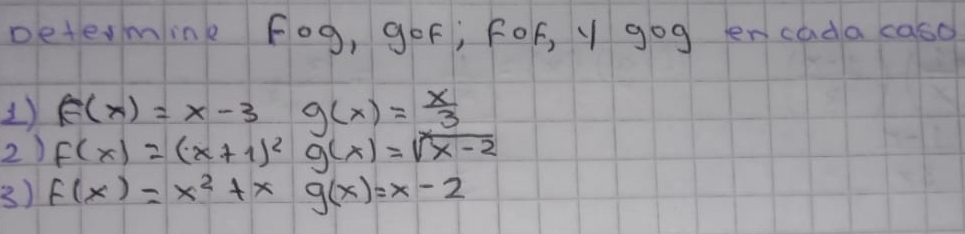 Determine fog, gof; fof, y gog en cada caso
1) f(x) = x - 3 g(x) = x/3
2) f(x) = (x + 1)² g(x) = √x - 2
3) f(x) = x² + x g(x) = x - 2